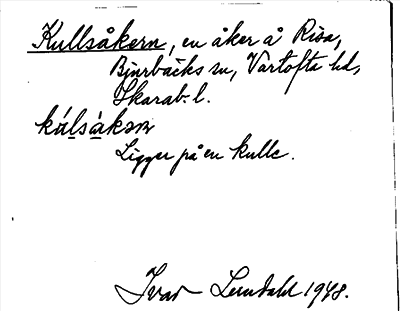 Kullsåkern, en åker å Risa,
Bjurbäcks sn, Vartofta hd,
Skarab. l.
kúlsåkɘɳ
Ligger på en kulle.
Ivar Lundahl 1948.